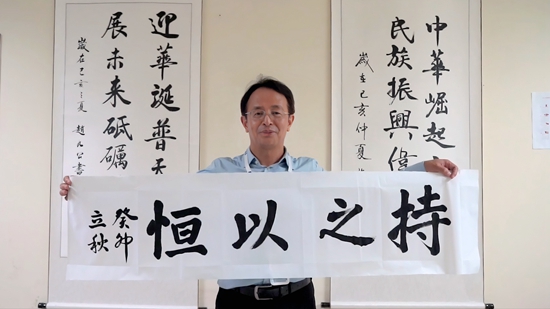 中華崛起
民族振興偉
歲在己亥仲夏
迎華誕普天
展未来砥礪
歲在己亥之夏 趙
持之以恒
癸卯
立秋